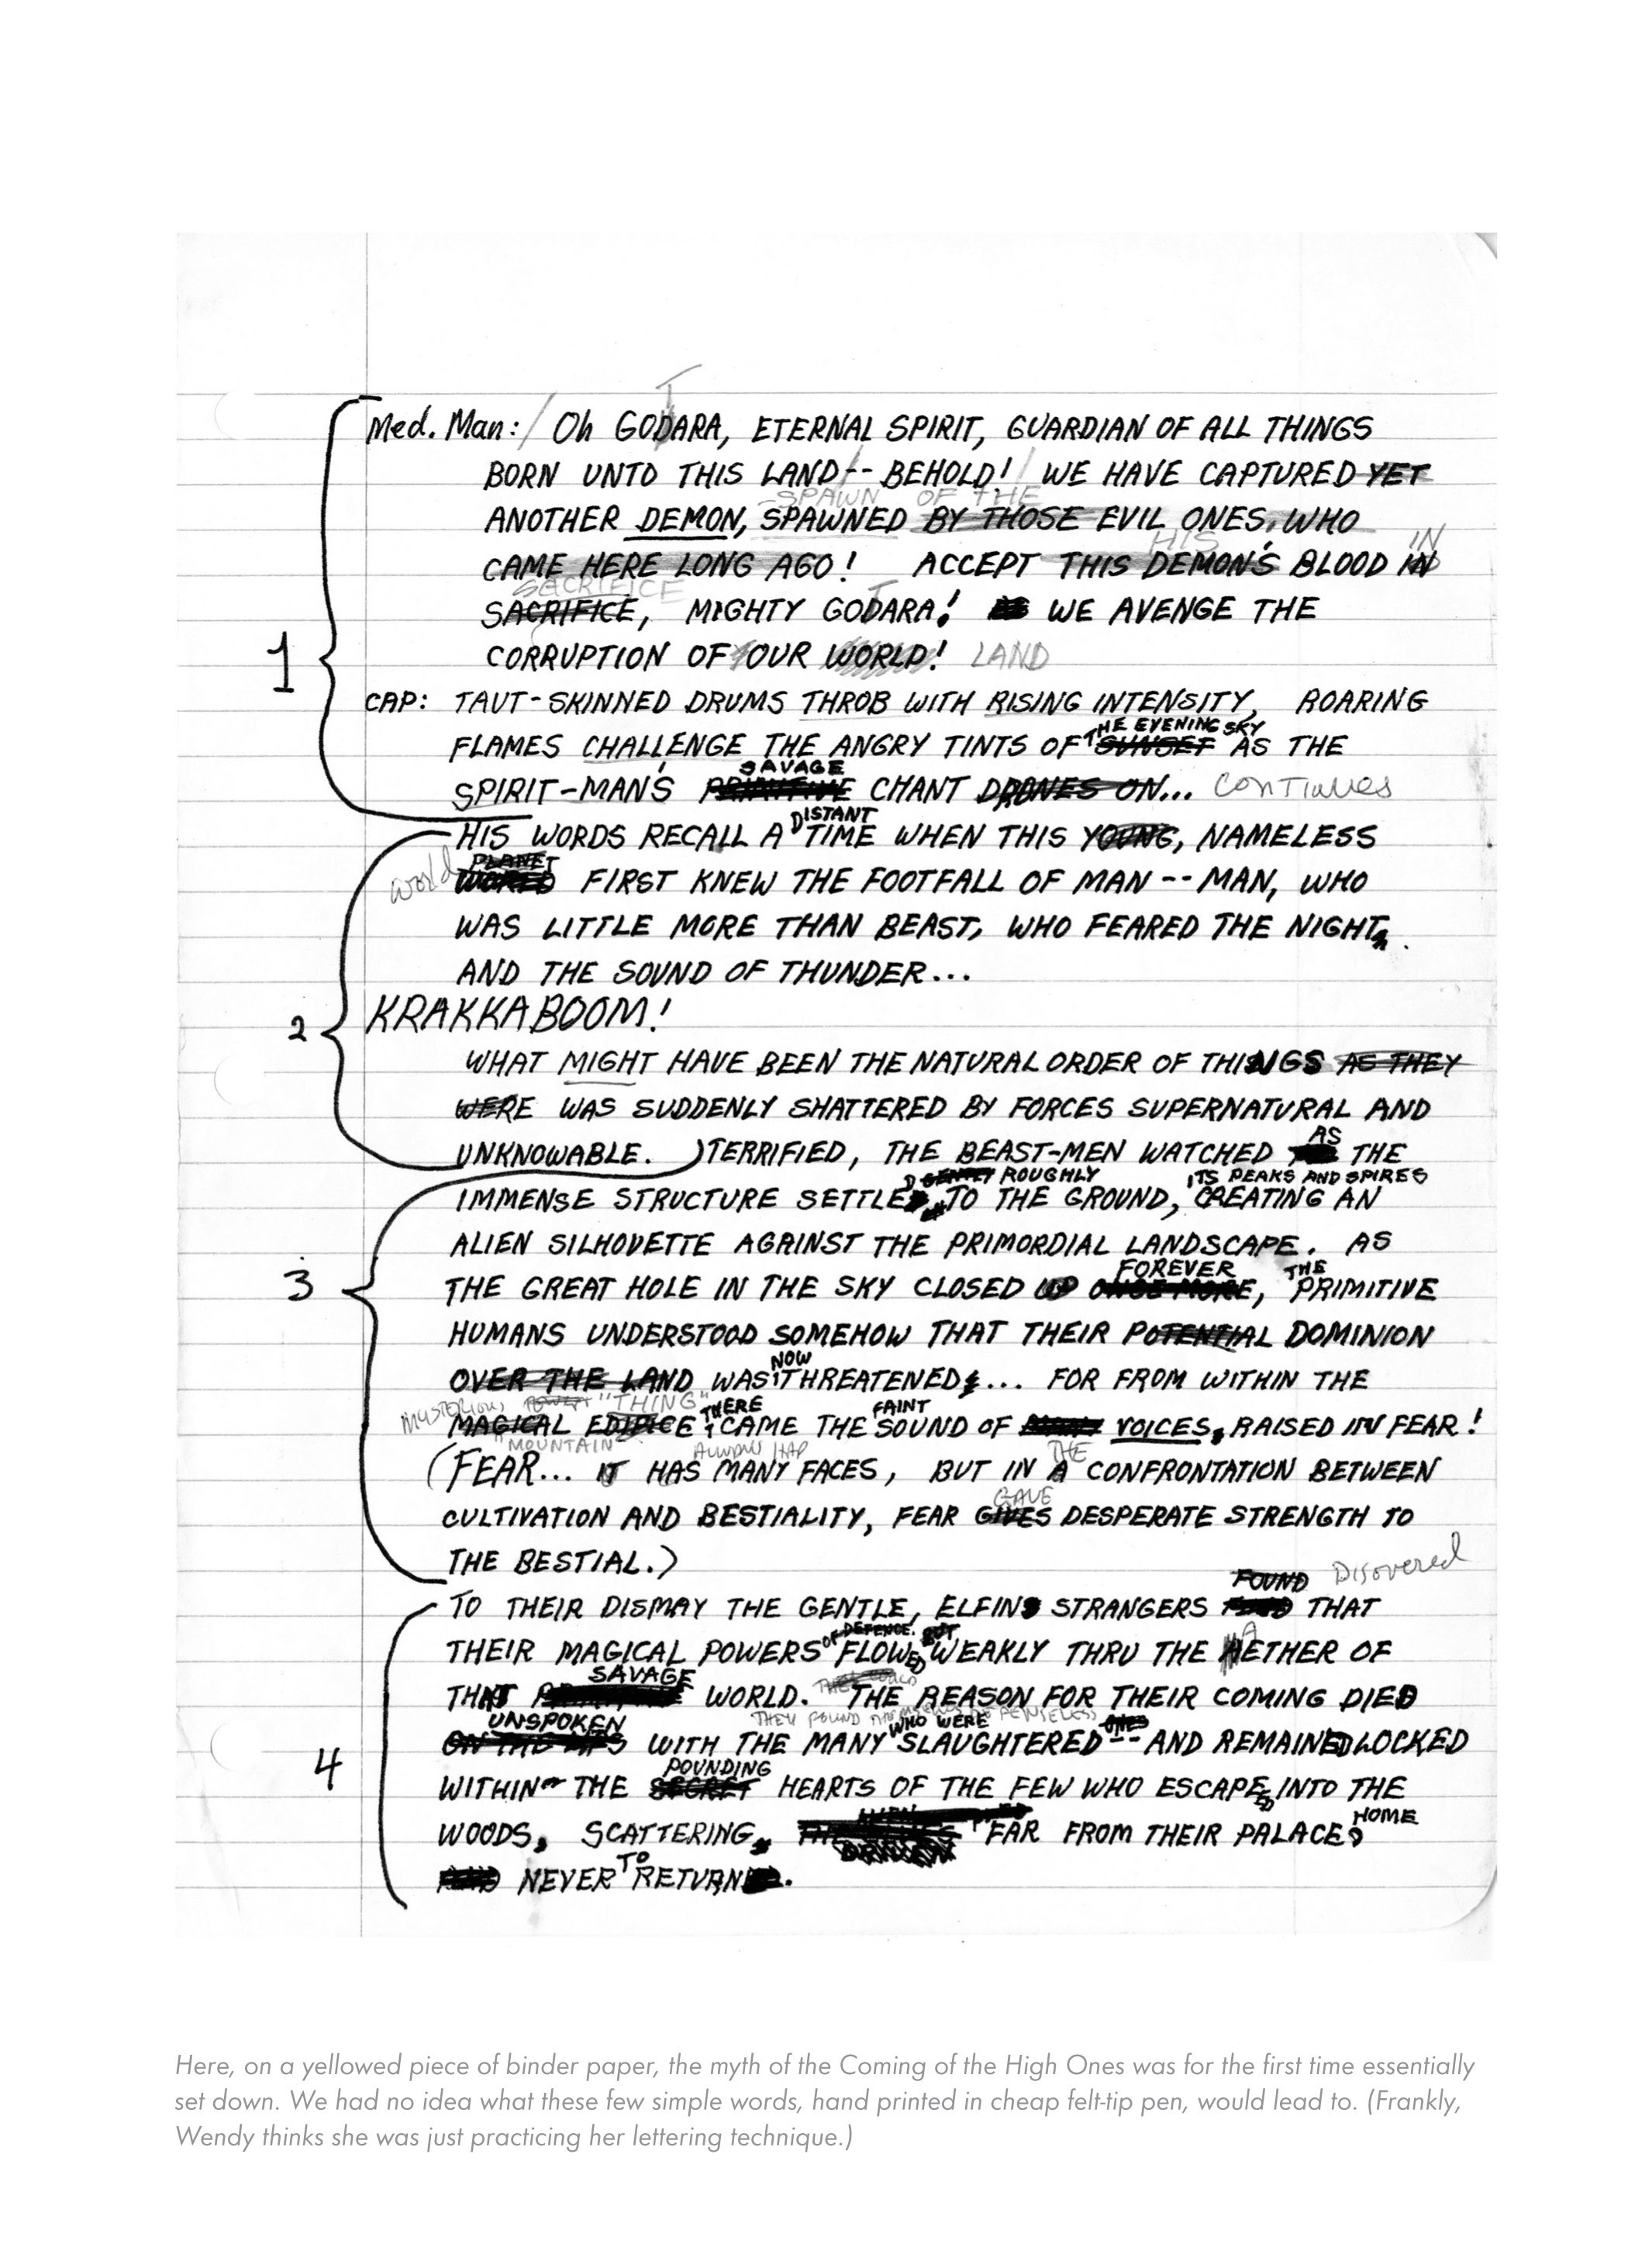 Med. Man: Oh GODARA, ETERNAL SPIRIT, GUARDIAN OF ALL THINGS
T
BORN UNTO THIS LAND -- BEHOLD! WE HAVE CAPTURED YET
SPAWN OF THE
ANOTHER DEMON, SPAWNED BY THOSE EVIL ONES, WHO
HIS IN
CAME HERE LONG AGO! ACCEPT THIS DEMON'S BLOOD IN
SACRIFICE T
SACRIFICE, MIGHTY GODARA! WE AVENGE THE
1
CORRUPTION OF OUR WORLD! LAND
CAP: TAUT-SKINNED DRUMS THROB WITH RISING INTENSITY, ROARING
THE EVENING SKY
FLAMES CHALLENGE THE ANGRY TINTS OF SUNSET AS THE
SAVAGE
SPIRIT-MAN'S PRIMITIVE CHANT DRONES ON... CONTINUES
DISTANT
HIS WORDS RECALL A TIME WHEN THIS YOUNG, NAMELESS
PLANET
world WORLD FIRST KNEW THE FOOTFALL OF MAN -- MAN, WHO
WAS LITTLE MORE THAN BEAST, WHO FEARED THE NIGHT
AND THE SOUND OF THUNDER...
2
KRAKKABOOM!
WHAT MIGHT HAVE BEEN THE NATURAL ORDER OF THINGS AS THEY
WERE WAS SUDDENLY SHATTERED BY FORCES SUPERNATURAL AND
AS
UNKNOWABLE. ) TERRIFIED, THE BEAST-MEN WATCHED THE
GENTLY ROUGHLY ITS PEAKS AND SPIRES
IMMENSE STRUCTURE SETTLED TO THE GROUND, CREATING AN
ALIEN SILHOUETTE AGAINST THE PRIMORDIAL LANDSCAPE. AS
FOREVER THE
3
THE GREAT HOLE IN THE SKY CLOSED UP ONCE MORE, PRIMITIVE
HUMANS UNDERSTOOD SOMEHOW THAT THEIR POTENTIAL DOMINION
NOW
OVER THE LAND WAS THREATENED... FOR FROM WITHIN THE
MYSTERIOUS "THING" THERE FAINT
MAGICAL EDIFICE CAME THE SOUND OF VOICES, RAISED IN FEAR!
"MOUNTAIN" THE
(FEAR... IT HAS MANY FACES, BUT IN A CONFRONTATION BETWEEN
GAVE
CULTIVATION AND BESTIALITY, FEAR GIVES DESPERATE STRENGTH TO
THE BESTIAL.)
FOUND Disovered
TO THEIR DISMAY THE GENTLE, ELFIN STRANGERS THAT
OF DEFENCE. BUT A
THEIR MAGICAL POWERS FLOWED WEAKLY THRU THE AETHER OF
SAVAGE
THAT WORLD. THE REASON FOR THEIR COMING DIED
THEY FOUND THEMSELVES DEFENSELESS
UNSPOKEN WHO WERE ONES
ON THE LIPS WITH THE MANY SLAUGHTERED -- AND REMAINED LOCKED
POUNDING
4
WITHIN THE SECRET HEARTS OF THE FEW WHO ESCAPED INTO THE
HOME
WOODS, SCATTERING, FAR FROM THEIR PALACE
TO
NEVER RETURN.
Here, on a yellowed piece of binder paper, the myth of the Coming of the High Ones was for the first time essentially
set down. We had no idea what these few simple words, hand printed in cheap felt-tip pen, would lead to. (Frankly,
Wendy thinks she was just practicing her lettering technique.)